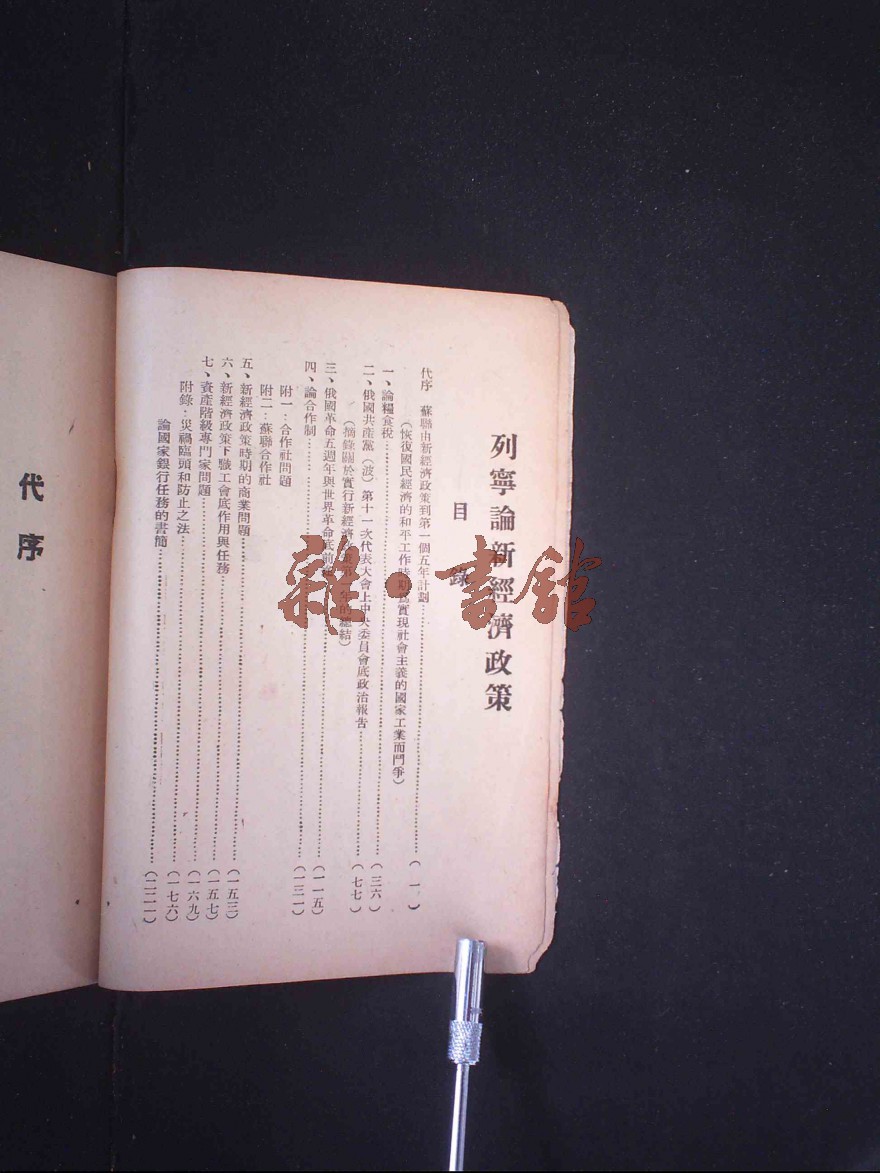 列寧論新經濟政策
目錄
代序 蘇聯由新經濟政策到第一個五年計劃……(一)
(恢復國民經濟的和平工作時期爲實現社會主義的國家工業而鬥爭)
一、論糧食稅……(三六)
二、俄國共產黨(波)第十一次代表大會上中央委員會底政治報告……(七七)
(摘錄關於實行新經濟第一年的總結)
三、俄國革命五週年與世界革命底前……(一一五)
四、論合作制……(一三一)
附一:合作社問題
附二:蘇聯合作社
五、新經濟政策時期的商業問題……(一五三)
六、新經濟政策下職工會底作用與任務……(一五七)
七、資產階級專門家問題……(一六九)
附錄:災禍臨頭和防止之法……(一七六)
論國家銀行任務的書簡……(二二一)
代序
雜·書館